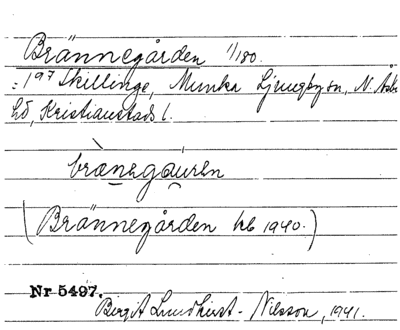 Brännegården 1/180.
: 1⁹⁷ Skillinge, Munka Ljungby sn, N. Åsbo
hd, Kristianstads l.
bræ̀nəgɑ́uren
(Brännegården kb 1940.)
Nr 5497.
Birgit Lundkvist-Nilsson, 1941.